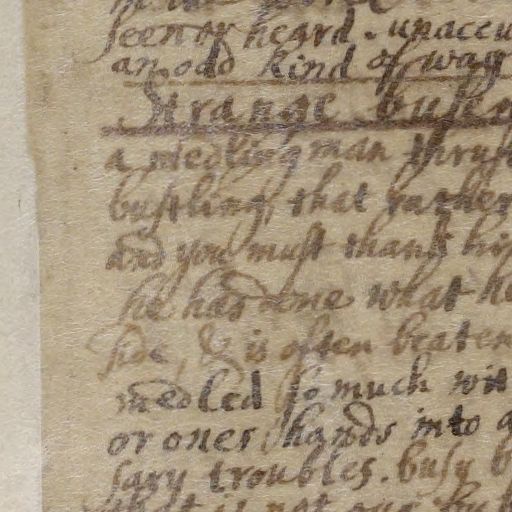 seen or heard. unaccu
an odd kind of way
Strange busen
a medling man thrust
bustling, that rather
and you must thank hi
he has done what he
side, & is often beaten
medled so much wit
or ones hands into a
sary troubles. busy b